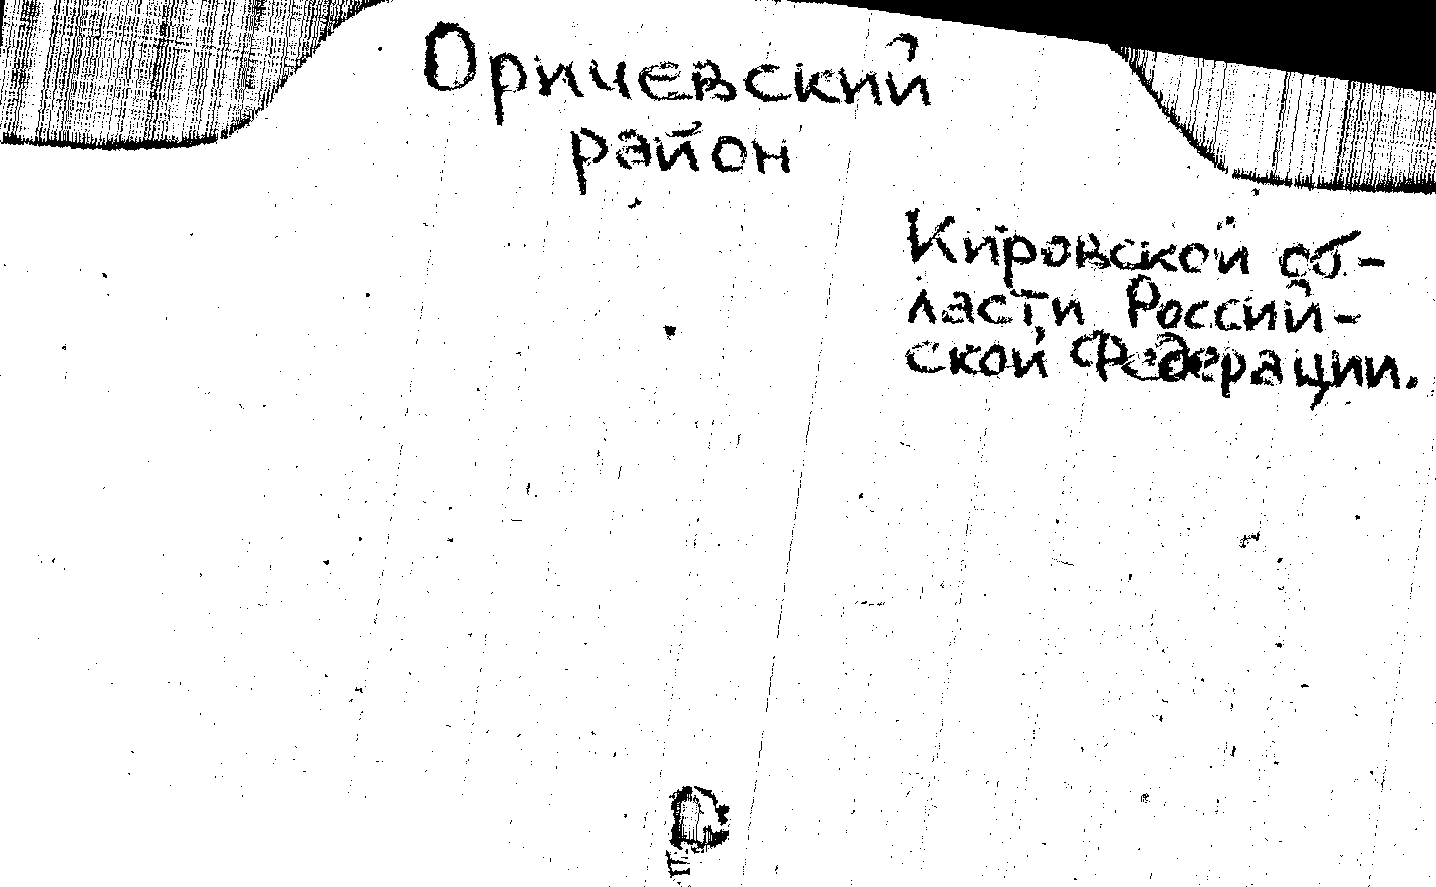 Оричевский
район
Кировской об-
ласти Россий-
ской Федерации.